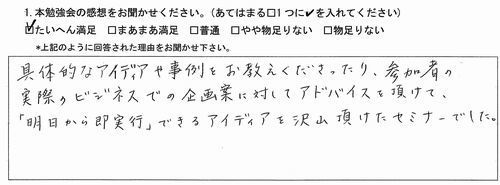 1. 本勉強会の感想をお聞かせください。(あてはまる□1つに✔を入れてください)
☑たいへん満足 □まあまあ満足 □普通 □やや物足りない □物足りない
*上記のように回答された理由をお聞かせ下さい。
具体的なアイディアや事例をお教えくださったり、参加者の
実際のビジネスでの企画業に対してアドバイスを頂けて、
「明日から即実行」できるアイディアを沢山頂けたセミナーでした。